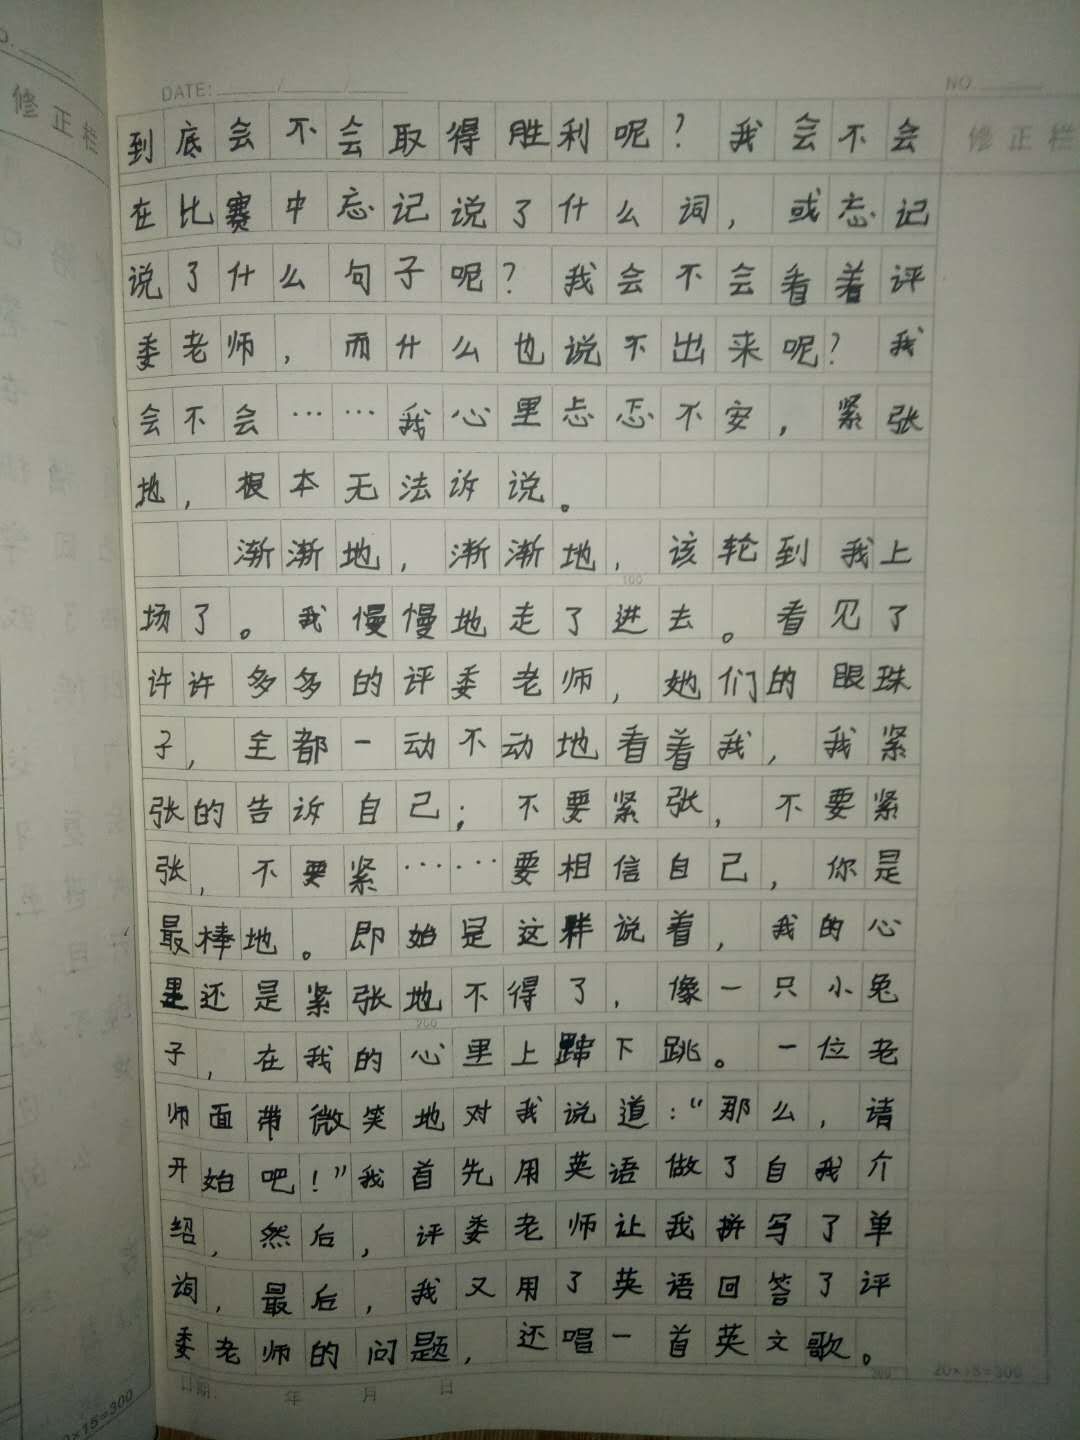 DATE: / /
NO
修正栏
修正栏
到底会不会取得胜利呢？我会不会
在比赛中忘记说了什么词，或忘记
说了什么句子呢？我会不会看着评
委老师，而什么也说不出来呢？我
会不会……我心里忐忑不安，紧张
地，根本无法诉说。
渐渐地，渐渐地，该轮到我上
100
场了。我慢慢地走了进去。看见了
许许多多的评委老师，她们的眼珠
子，全都一动不动地看着我，我紧
张的告诉自己；不要紧张，不要紧
张，不要紧……要相信自己，你是
最棒地。即始是这样说着，我的心
里还是紧张地不得了，像一只小兔
200
子，在我的心里上蹿下跳。一位老
师面带微笑地对我说道：“那么，请
开始吧！”我首先用英语做了自我介
绍，然后，评委老师让我拼写了单
词，最后，我又用了英语回答了评
委老师的问题，还唱一首英文歌。
300
20×15=300
日期： 年 月 日